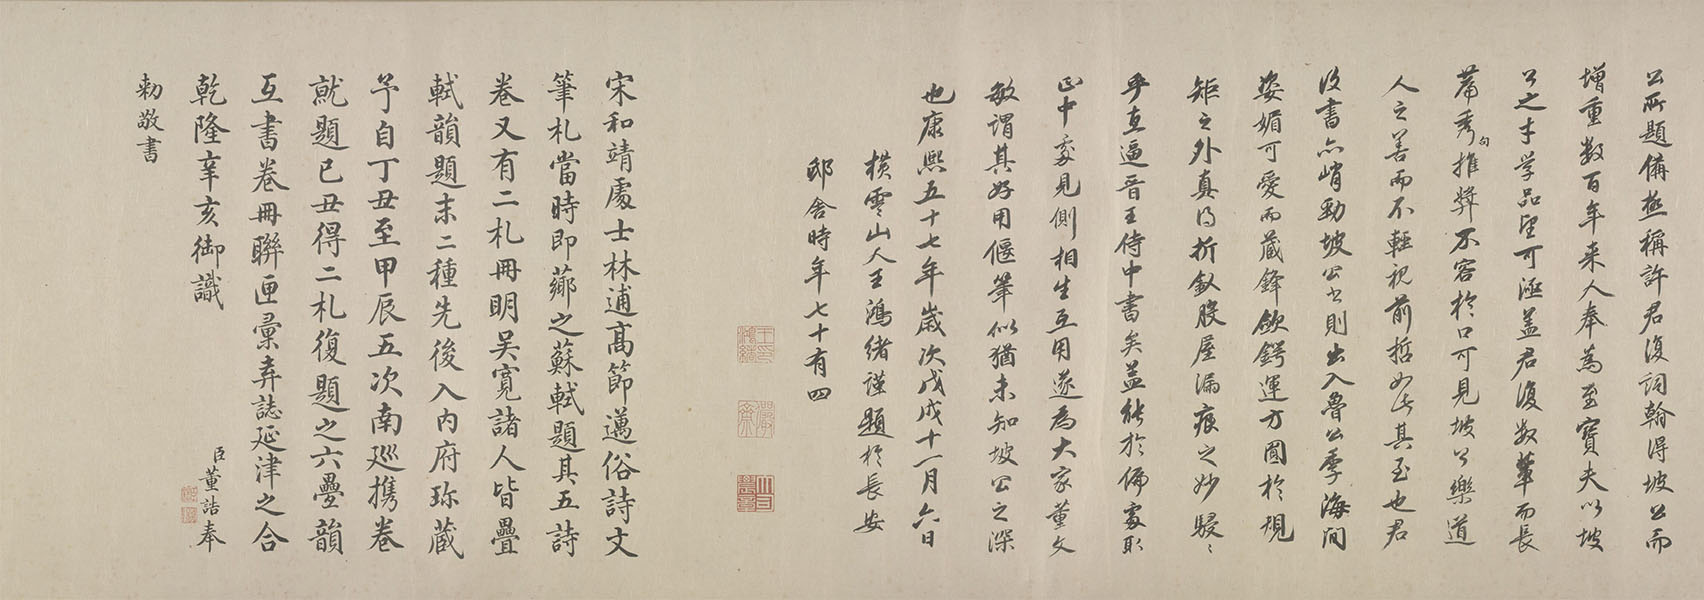 公所題備極稱許君復詞翰得坡公而
增重數百年来人奉為至寶夫以坡
公之才学品望可涵盖君復数輩而長
篇秀句推奬不容於口可見坡公樂道
人之善而不輕視前哲如此其至也君
復書亦峭勁坡公書則出入魯公季海间
姿媚可愛而藏鋒歛鍔運方圎於規
矩之外真得折釵股屋漏痕之妙駸〻
乎直逼晋王侍中書矣盖能於偏處取
正中處見側相生互用遂為大家董文
敏謂其好用偃筆似猶未知坡公之深
也康熙五十七年歲次戊戌十一月六日
橫雲山人王鴻緒謹題於長安
邸舍時年七十有四
王鴻緒印
宋和靖處士林逋高節邁俗詩文
筆札當時即薌之蘇軾題其五詩
卷又有二札冊明吳寬諸人皆疊
軾韻題末二種先後入內府珎藏
予自丁丑至甲辰五次南廵携卷
就題已丑得二札復題之六疊韻
互書卷冊聯匣彙弆誌延津之合
乾隆辛亥御識
臣董誥奉
勅敬書